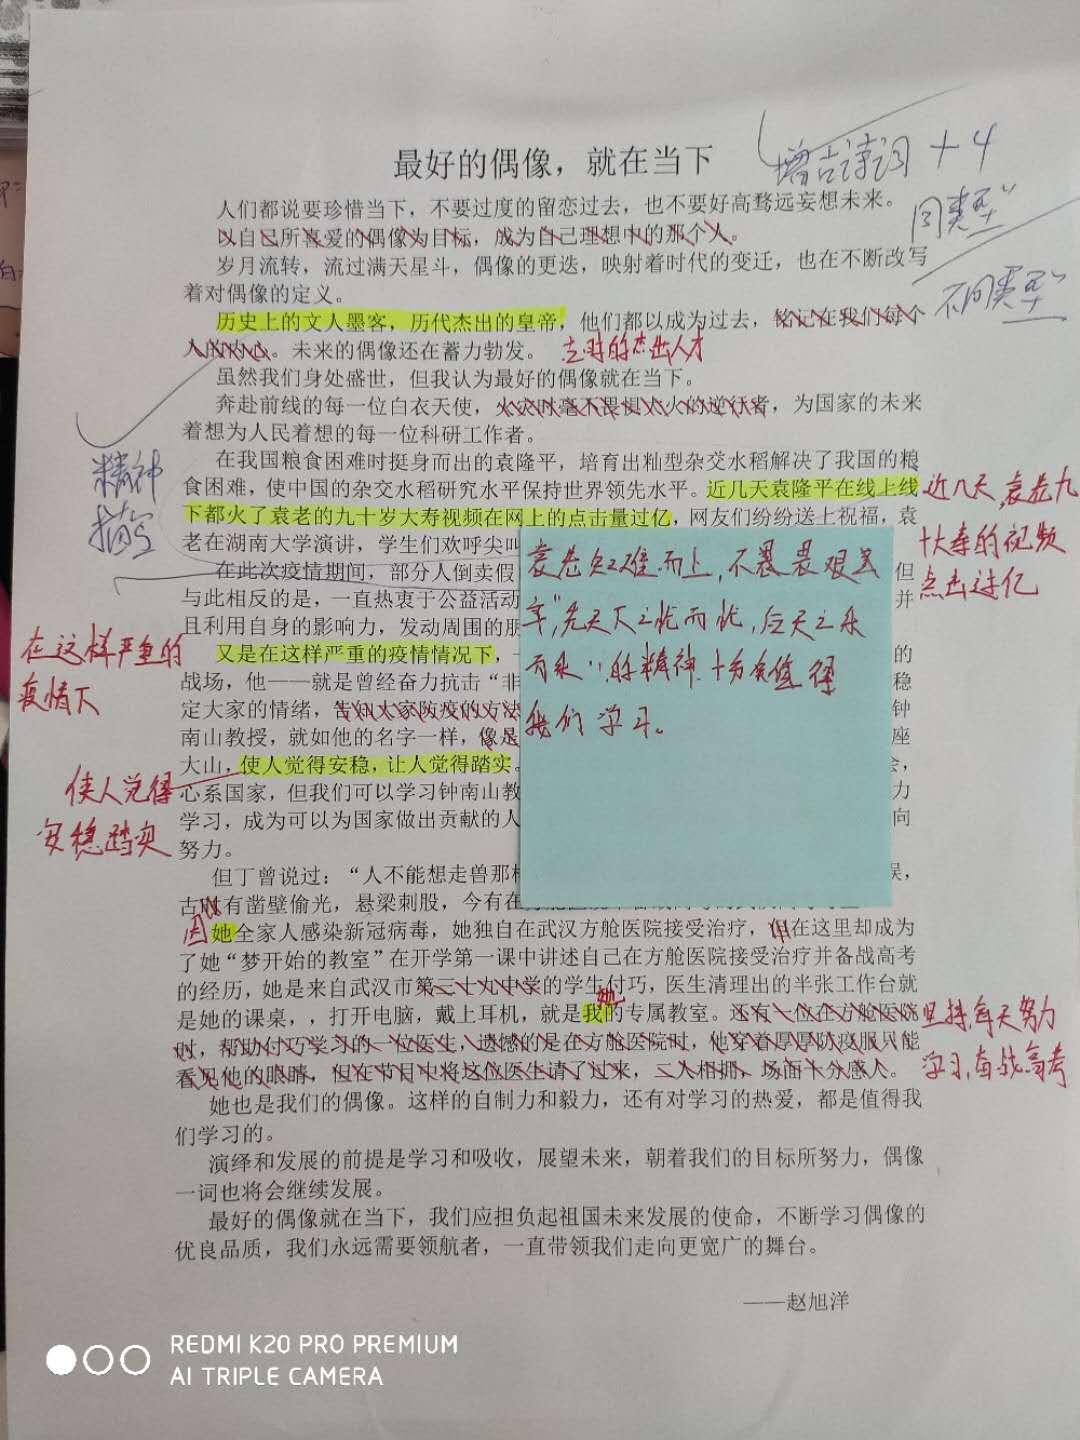 最好的偶像，就在当下
增古诗词 +4
同类型
不同类型
人们都说要珍惜当下，不要过度的留恋过去，也不要好高骛远妄想未来。
以自己所喜爱的偶像为目标，成为自己理想中的那个人。
岁月流转，流过满天星斗，偶像的更迭，映射着时代的变迁，也在不断改写
着对偶像的定义。
历史上的文人墨客，历代杰出的皇帝，他们都以成为过去，铭记在我们每个
人的内心。未来的偶像还在蓄力勃发。
去时的杰出人才
虽然我们身处盛世，但我认为最好的偶像就在当下。
奔赴前线的每一位白衣天使，火灾时毫不畏惧大火的逆行者，为国家的未来
着想为人民着想的每一位科研工作者。
精神
描写
在我国粮食困难时挺身而出的袁隆平，培育出籼型杂交水稻解决了我国的粮
食困难，使中国的杂交水稻研究水平保持世界领先水平。近几天袁隆平在线上线
下都火了袁老的九十岁大寿视频在网上的点击量过亿，网友们纷纷送上祝福，袁
老在湖南大学演讲，学生们欢呼尖叫
近几天，袁老九
十大寿的视频
点击过亿
袁老知难而上，不畏畏艰辛
辛，“先天下之忧而忧，后天之乐
而乐”的精神十分值得
我们学习。
在此次疫情期间，部分人倒卖假 但
与此相反的是，一直热衷于公益活动 并
且利用自身的影响力，发动周围的朋
在这样严重的
疫情下
又是在这样严重的疫情情况下， 的
战场，他——就是曾经奋力抗击“非 稳
定大家的情绪，告知大家防疫的方法 钟
南山教授，就如他的名字一样，像是 座
大山，使人觉得安稳，让人觉得踏实。
心系国家，但我们可以学习钟南山教 力
学习，成为可以为国家做出贡献的人 向
努力。
使人觉得
安稳踏实
但丁曾说过：“人不能想走兽那
古时有凿壁偷光，悬梁刺股，今有在
因她全家人感染新冠病毒，她独自在武汉方舱医院接受治疗，但在这里却成为
了她“梦开始的教室”在开学第一课中讲述自己在方舱医院接受治疗并备战高考
的经历，她是来自武汉市第三十九中学的学生付巧，医生清理出的半张工作台就
是她的课桌，，打开电脑，戴上耳机，就是我的专属教室。还有一位在方舱医院
她
时，帮助付巧学习的一位医生，遗憾的是在方舱医院时，他穿着厚厚防疫服只能
看见他的眼睛，但在节目中将这位医生请了过来，二人相拥，场面十分感人。
坚持每天努力
学习，奋战高考
她也是我们的偶像。这样的自制力和毅力，还有对学习的热爱，都是值得我
们学习的。
演绎和发展的前提是学习和吸收，展望未来，朝着我们的目标所努力，偶像
一词也将会继续发展。
最好的偶像就在当下，我们应担负起祖国未来发展的使命，不断学习偶像的
优良品质，我们永远需要领航者，一直带领我们走向更宽广的舞台。
——赵旭洋
REDMI K20 PRO PREMIUM
AI TRIPLE CAMERA